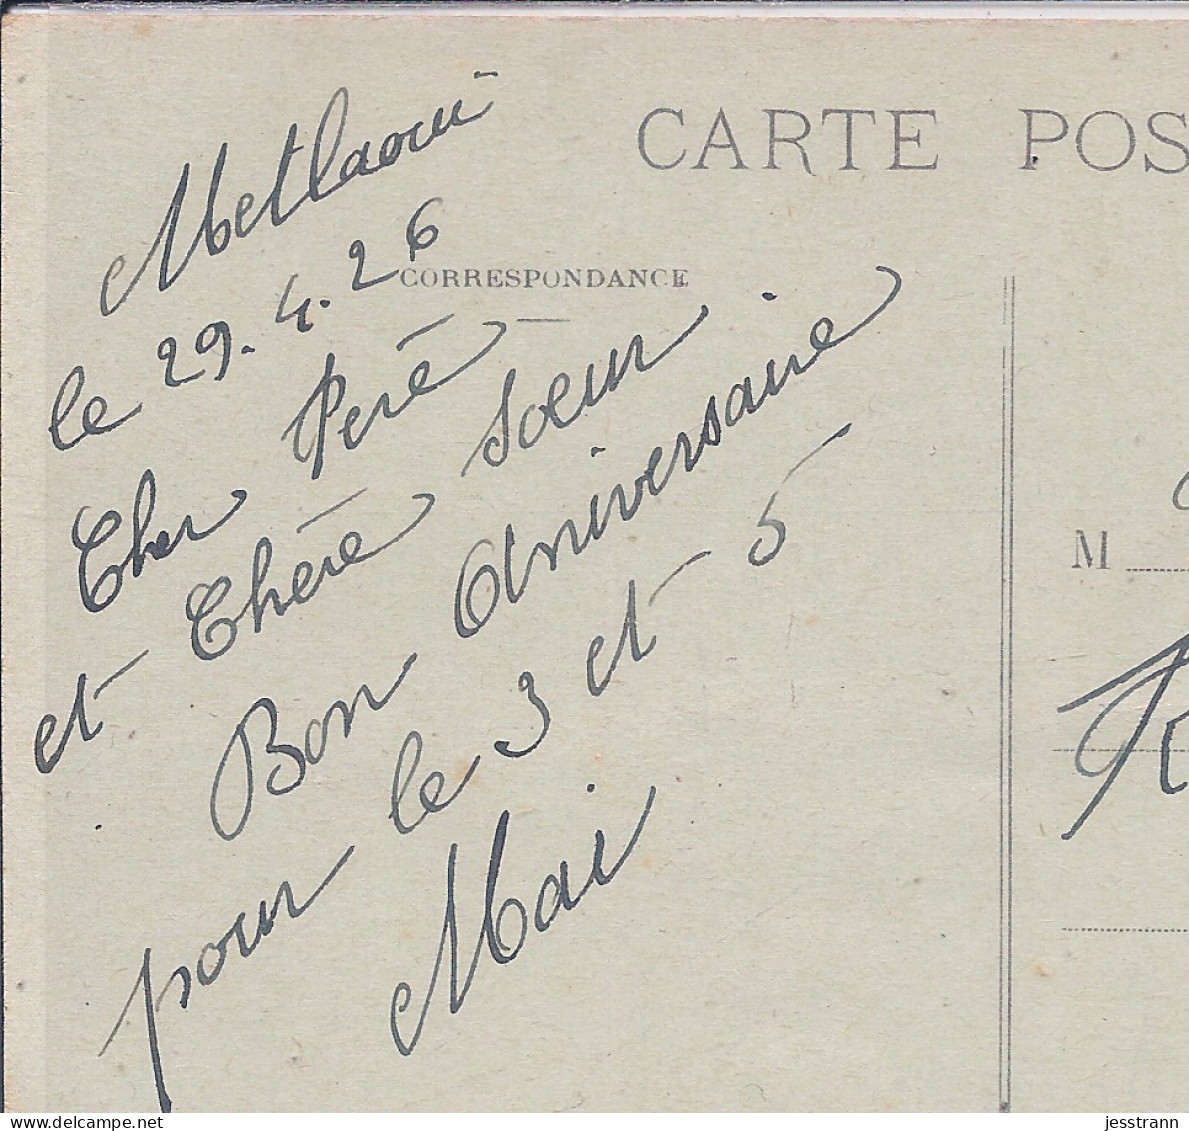 CARTE POS
CORRESPONDANCE
Metlaoui
le 29.4.26
Cher Peré
et Chére Soeur
Bon Aniversaire
pour le 3 et 5
Mai
M
jesstrann